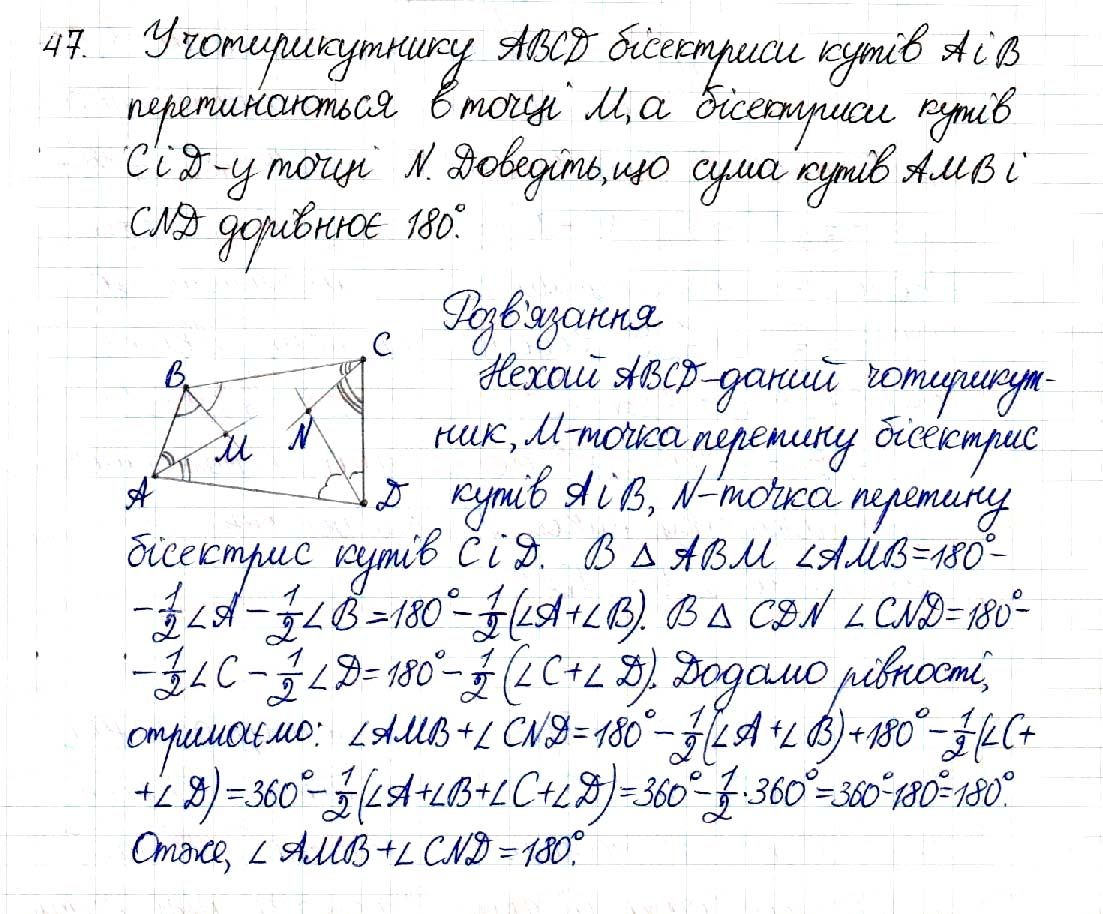 47. У чотирикутнику ABCD бісектриси кутів A і B
перетинаються в точці M, а бісектриси кутів
C і D - у точці N. Доведіть, що сума кутів AMB і
CND дорівнює 180°.
Розв'язання
C
B
N
M
A
D
Нехай ABCD - даний чотирикут-
ник, M - точка перетину бісектрис
кутів A і B, N - точка перетину
бісектрис кутів C і D. В △ ABM ∠AMB = 180° -
- 1/2 ∠A - 1/2 ∠B = 180° - 1/2 (∠A + ∠B). В △ CDN ∠CND = 180° -
- 1/2 ∠C - 1/2 ∠D = 180° - 1/2 (∠C + ∠D). Додамо рівності,
отримаємо: ∠AMB + ∠CND = 180° - 1/2 (∠A + ∠B) + 180° - 1/2 (∠C +
+ ∠D) = 360° - 1/2 (∠A + ∠B + ∠C + ∠D) = 360° - 1/2 · 360° = 360° - 180° = 180°.
Отже, ∠AMB + ∠CND = 180°.